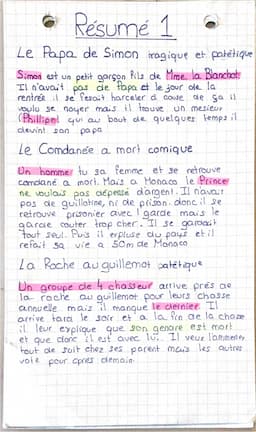 Résumé 1
Le Papa de Simon tragique et pathétique
Simon est un petit garçon fils de Mme la Blanchot.
Il n'avait pas de Papa et le jour de la
rentrée il se fesait harceler a cause de ça il
voulu se noyer mais il trouve un mesieur
(Phillipe) qui au bout de quelques temps il
devint son papa
Le Comdanée a mort comique
Un homme tu sa femme et se retrouve
comdané a mort. Mais a Monaco le Prince
ne voulais pas dépessé d'argent. Il n'avait
pas de guillotine, ni de prison. donc il se
retrouve prisonier avec 1 garde mais le
garde couter trop cher. Il se gardait
tout seul. Puis il expluse du pays et il
refait sa vie a 50m de Monaco
La Roche au guillemot patétique
Un groupe de 4 chasseur arrive prés de
la roche au guillemot pour leurs chasse
annuelle mais il manque le dernier. Il
arrive tard le soir et a la fin de la chasse
il leur explique que son gendre est mort
et que donc il est avec lui. Il veux l'amener
tout de suit chez ses parent mais les autres
vote pour apres demain.